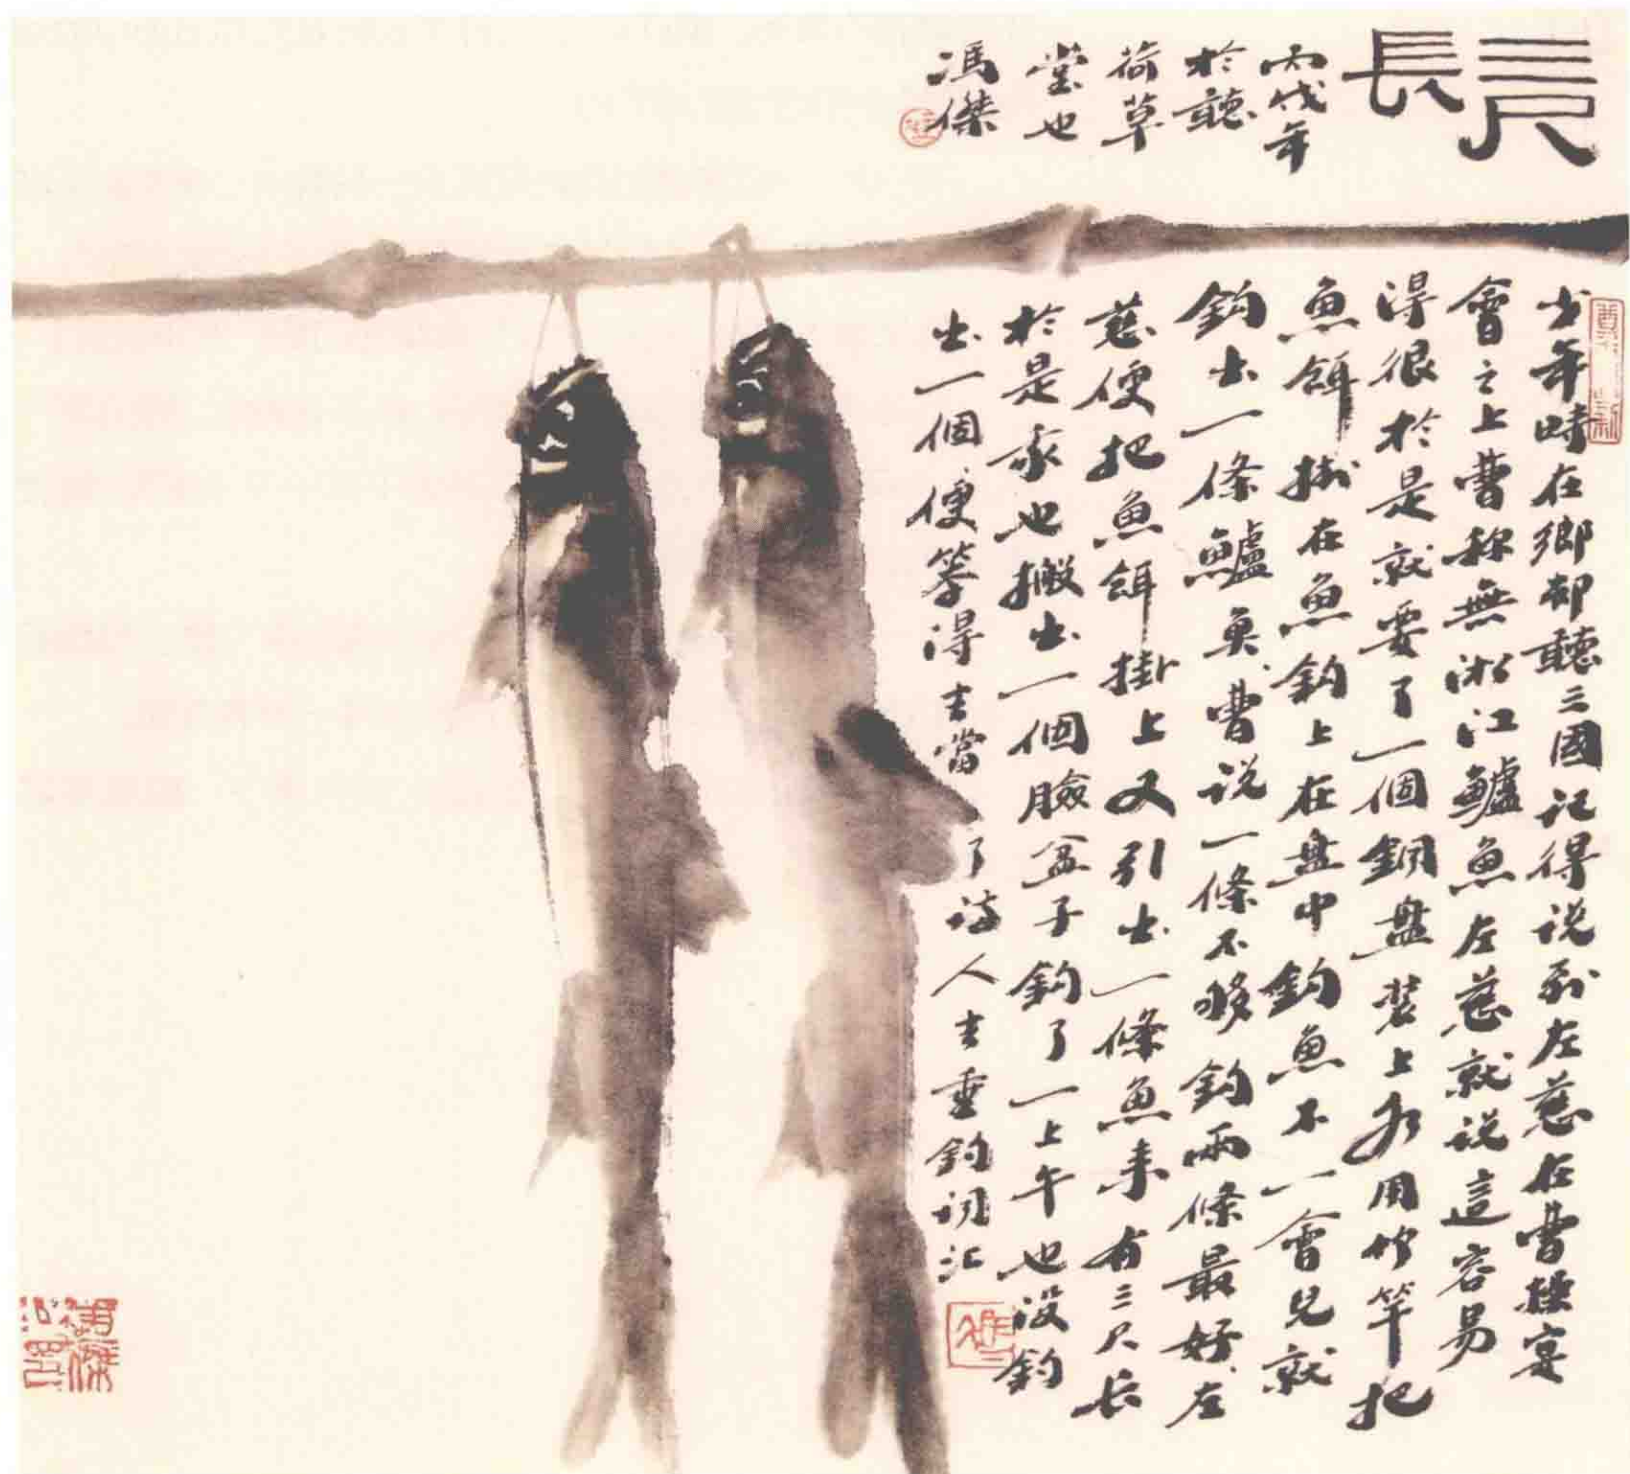 三尺
長
丙戌年
於聽
荷草
堂也
馮傑
少年時在鄉邨聽三國記得说到左慈在曹操宴
會之上曹称無淞江鱸魚左慈就说這容易
得很於是就要了一個銅盘裝上水用竹竿把
魚餌掛在魚鈎上在盘中釣魚不一會兒就
釣出一條鱸魚曹说一條不够釣兩條最好左
慈便把魚餌掛上又引出一條魚来有三尺长
於是我也搬出一個臉盆子釣了一上午也没釣
出一個便等得去當了诗人去垂釣词汇